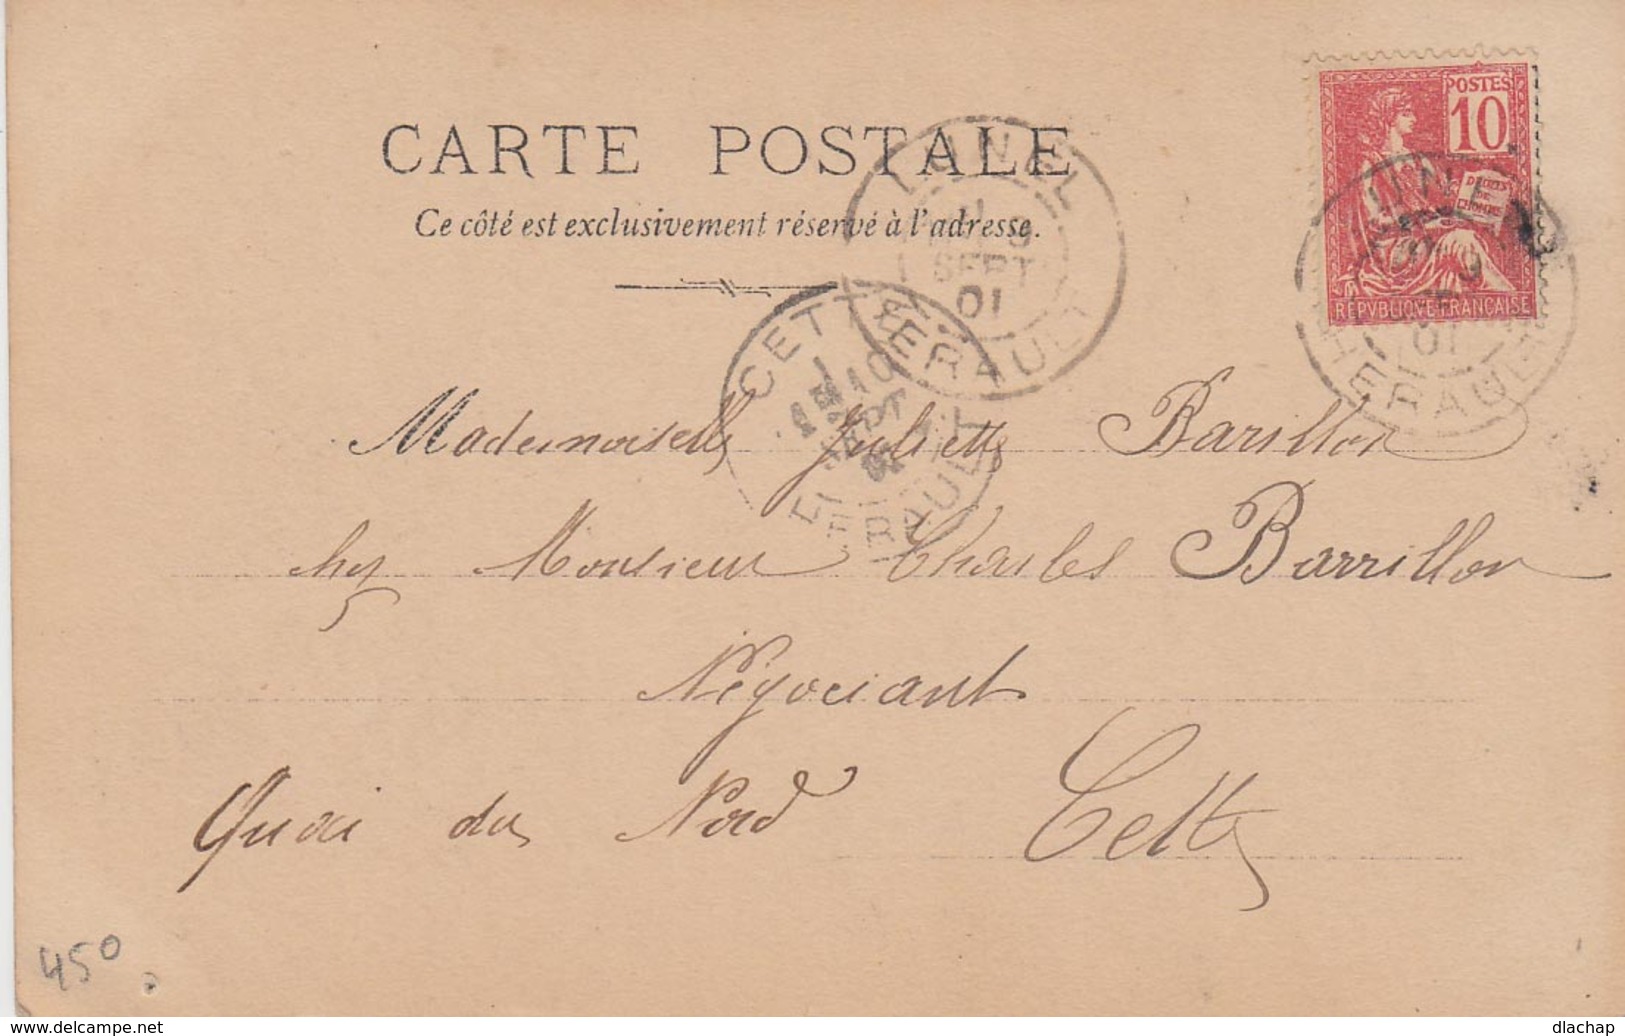 CARTE POSTALE
Ce côté est exclusivement réservé à l'adresse.
POSTES
10
DROITS
DE
L'HOMME
REPVBLIQVE FRANCAISE
LUNEL
9
SEPT
01
HERAULT
LUNEL
9
01
HERAULT
CETTE
10
SEPT
01
HERAULT
Mademoiselle Juliette Barillon
chez Monsieur Charles Barrillon
Négociant
Quai du Nord Cette
450
www.delcampe.net
dlachap